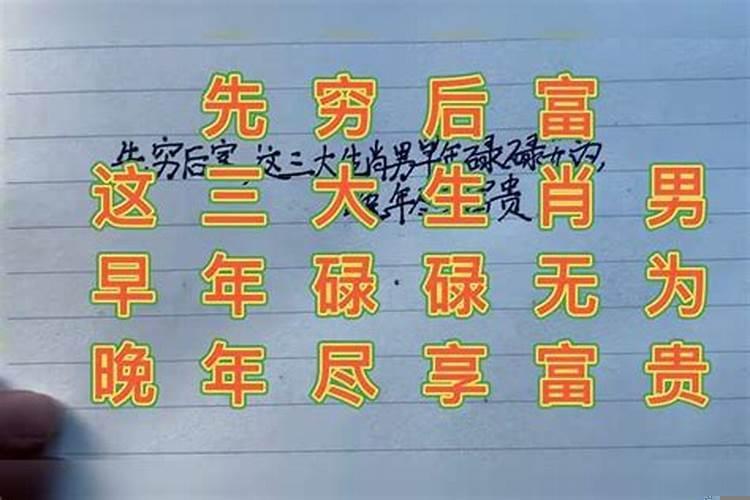 先穷后富
先穷后富,这三大生肖男早年碌碌无为,
这三大生肖男
贵
早年碌碌无为
晚年尽享富贵